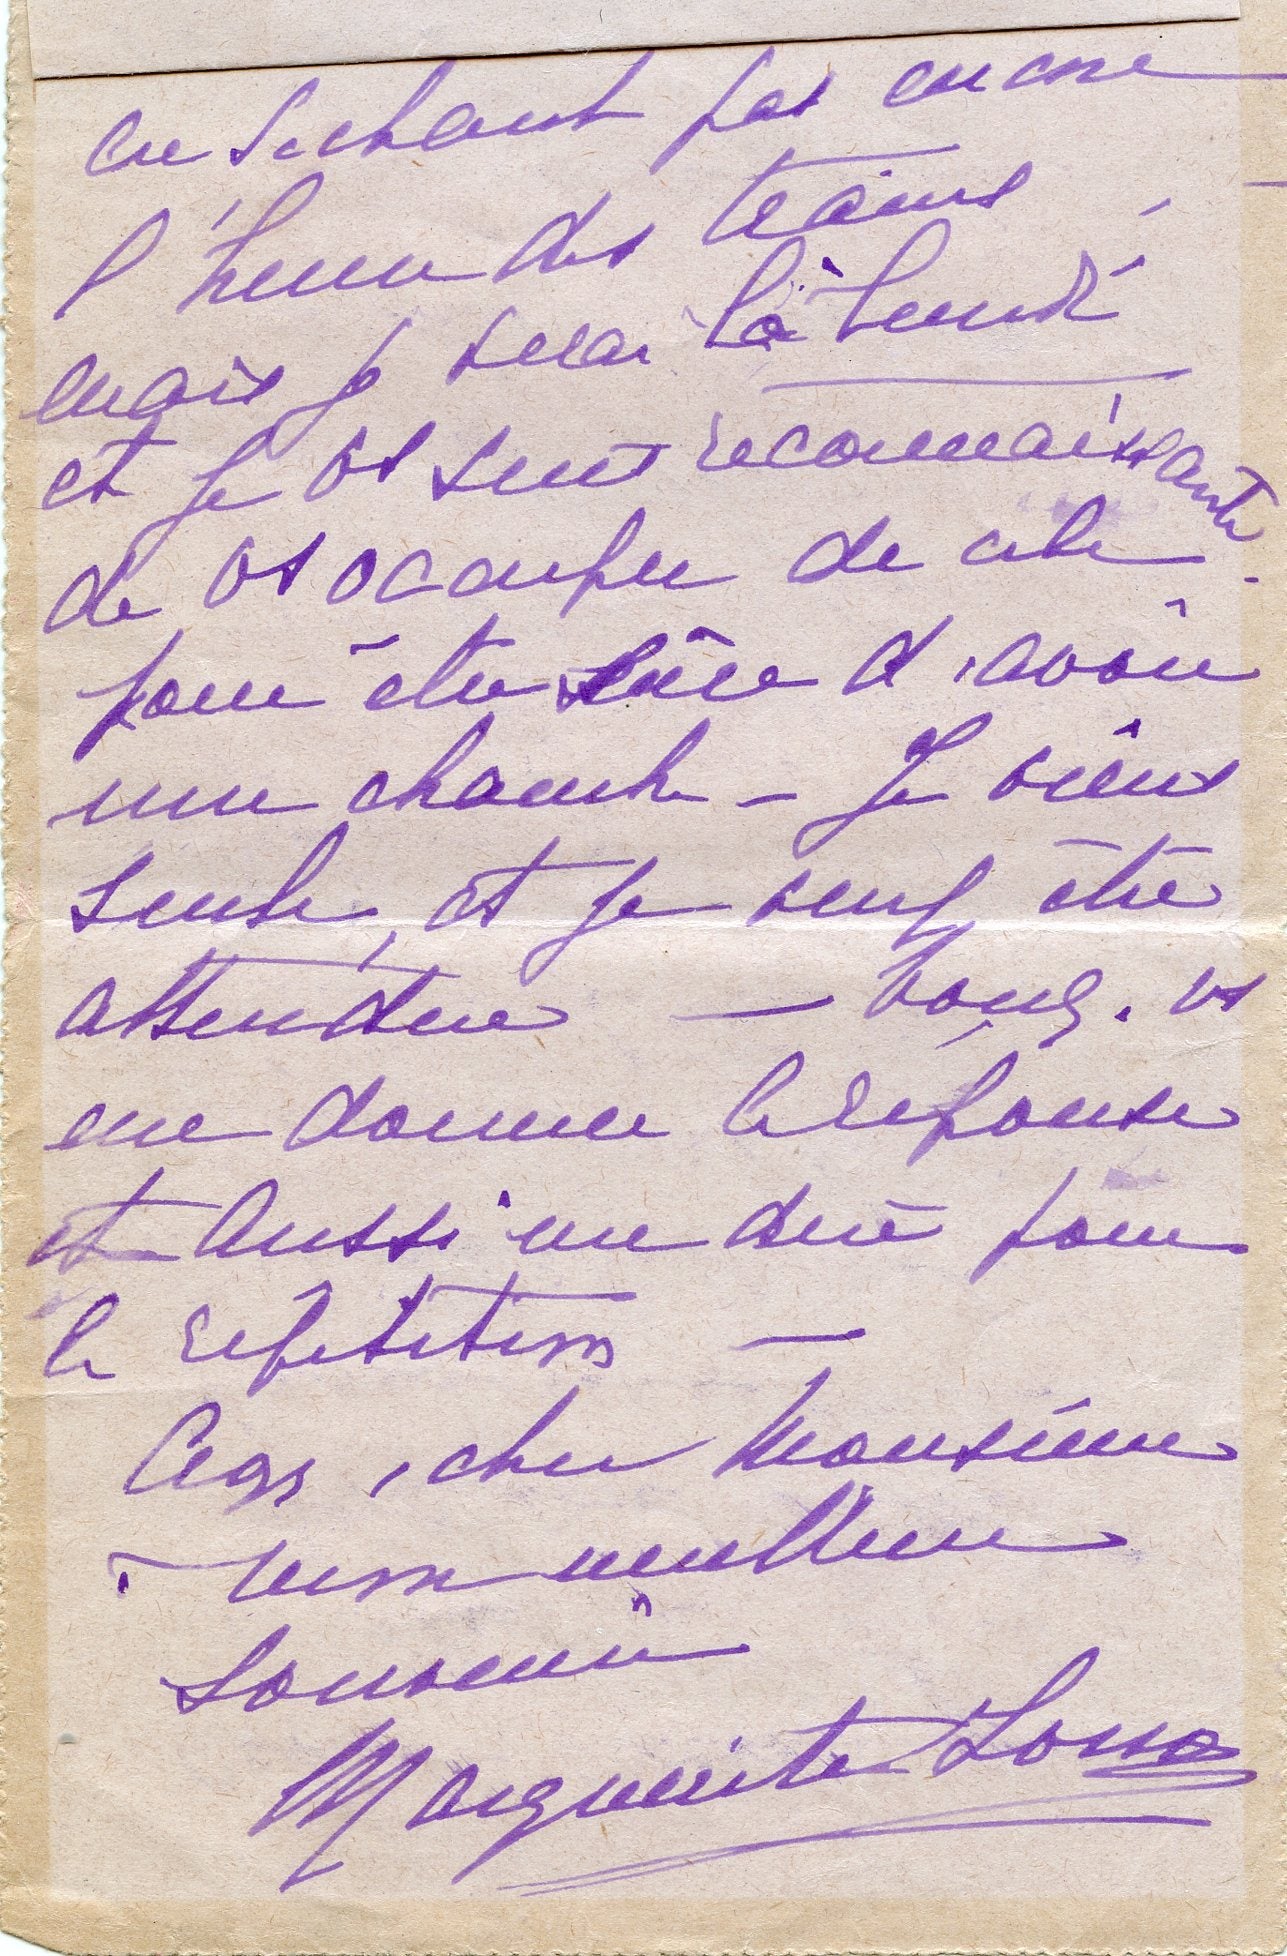 ne sachant pas encore
l'heure des trains,
mais je serai là lundi
et je vs serai reconnaissante
de vs occuper de cela
pour être sûre d'avoir
une chambre – Je viens
seule, et je veux être
attendue – Voulez-vs
me donner la réponse
et aussi me dire pour
la répétition –
Croyez, cher Monsieur
à mon meilleur
souvenir
Marguerite Long